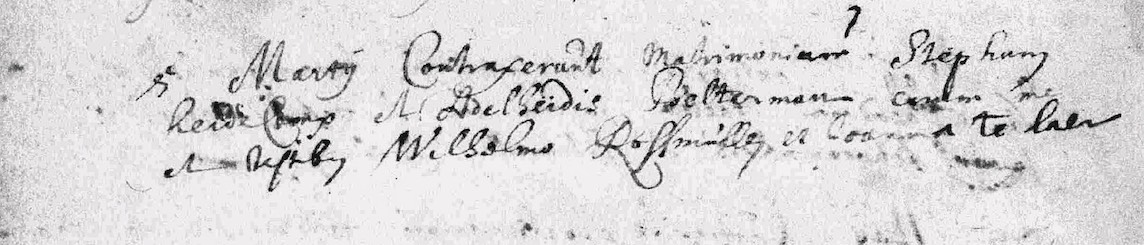 Martÿ Contraxerunt Matrimonium Stephany
heidekamp et Adelheidis Pöelterman coram me
et testiby Wilhelmo Rossmüller et Joanna te laer